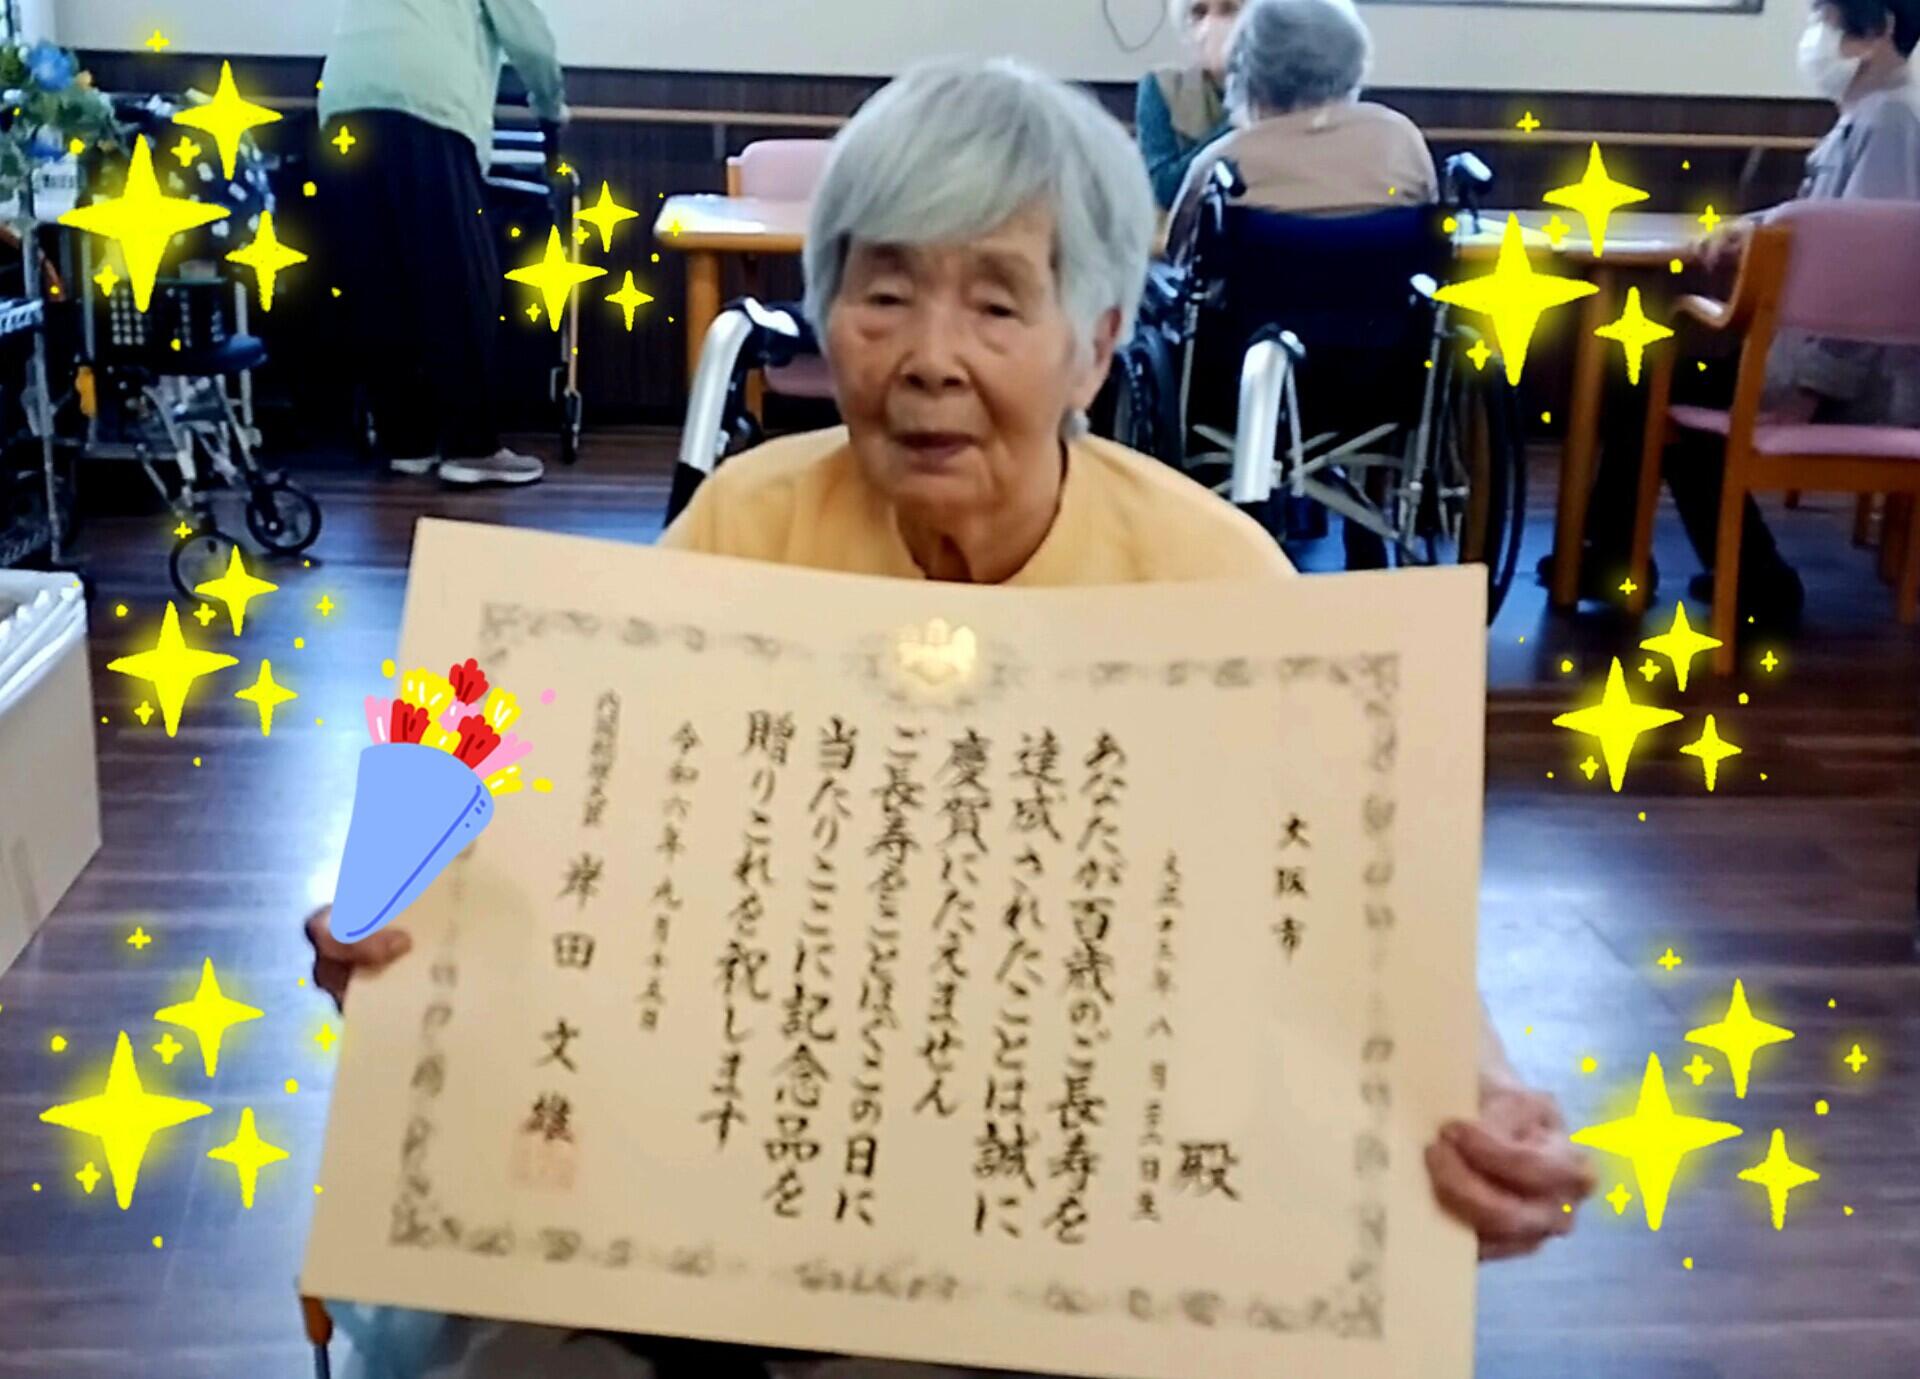 大阪市
殿
大正十三年八月三十一日生
あなたが百歳のご長寿を
達成されたことは誠に
慶賀にたえません
ご長寿をことほぐこの日に
当たりここに記念品を
贈りこれを祝します
令和六年九月十五日
内閣総理大臣 岸田文雄